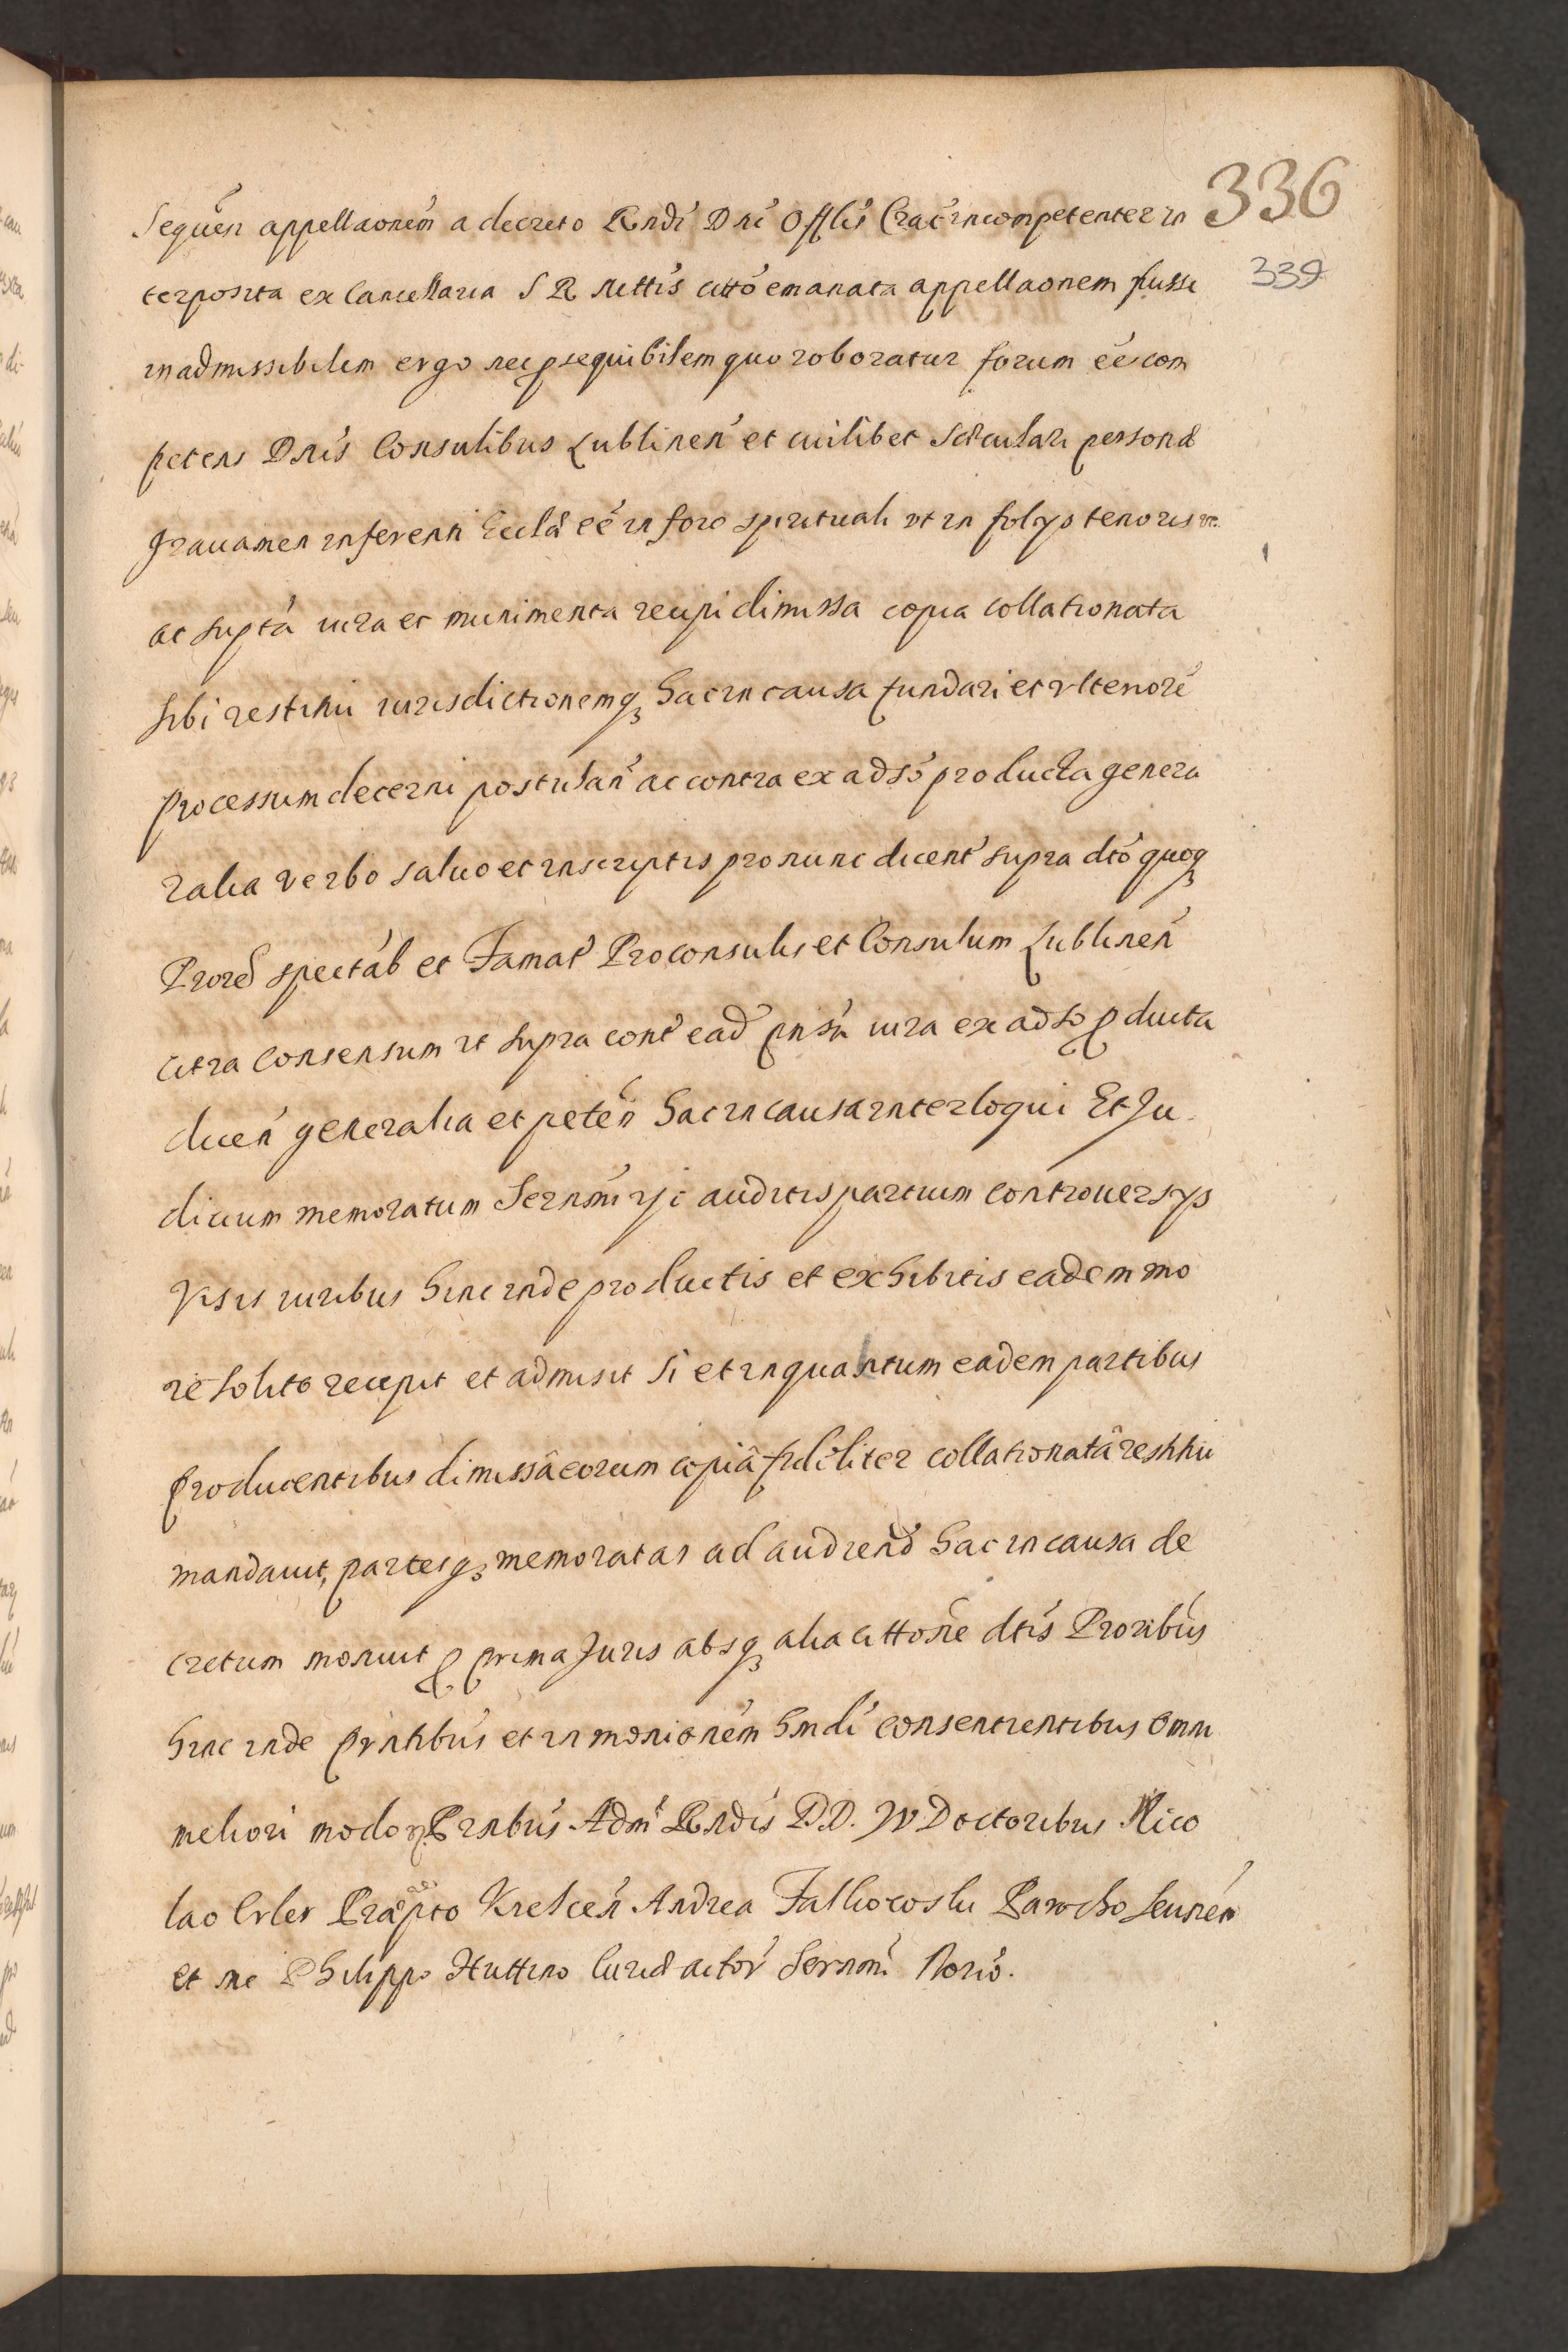 336
339
Sequen̄ appellaonem̄ a decreto Rndi Dni Offlis Crac̄ incompetenter in
terposita ex Cancellaria S R Mttis citto emanata appellaonem fuisse
inadmissibilem ergo nec psequibilem quo roboratur forum eē com
petens Dnis Consulibus Lublinen̄ et cuilibet sæculari personæ
grauamen inferenti Ecclæ eē in foro spirituali vt in folys tenoris etc.
ac supta iura et munimenta recipi dimissa copia collationata
sibi restitui iurisdictionemq3 hac in causa fundari et vlteriorē
processum decerni postulan̄ ac contra ex adso producta genera
ralia verbo saluo et inscriptis pro nunc dicent̄ supra dto quoq3
Prored spectab et Famat̄ Proconsulis et Consulum Lublinen̄
citra Consensum vt supra cont̄ ead pnsn iura ex adso pducta
dicen̄ generalia et peten̄ hac in causa interloqui Et Ju
dicium memoratum Sernmi yc auditis partium controuersys
Visis iuribus hinc inde productis et exhibitis eadem mo
re solito recepit et admisit si et inquantum eadem partibus
producentibus dimissâ eorum copiâ fideliter collationatâ restitui
mandauit, partesq3 memoratas ad audiend hac in causa de
cretum monuit p prima Juris absq3 alia cittone dtis Proribus
hinc inde pntibus et in monionem hmdi consentientibus omni
meliori modo Prnbus Admt Rndis D.D. W Doctoribus Nico
lao Erler Præpto Kielcen̄ Andrea Parocho
et me Philippo Huttino Curiæ actor Sernmi Norio.